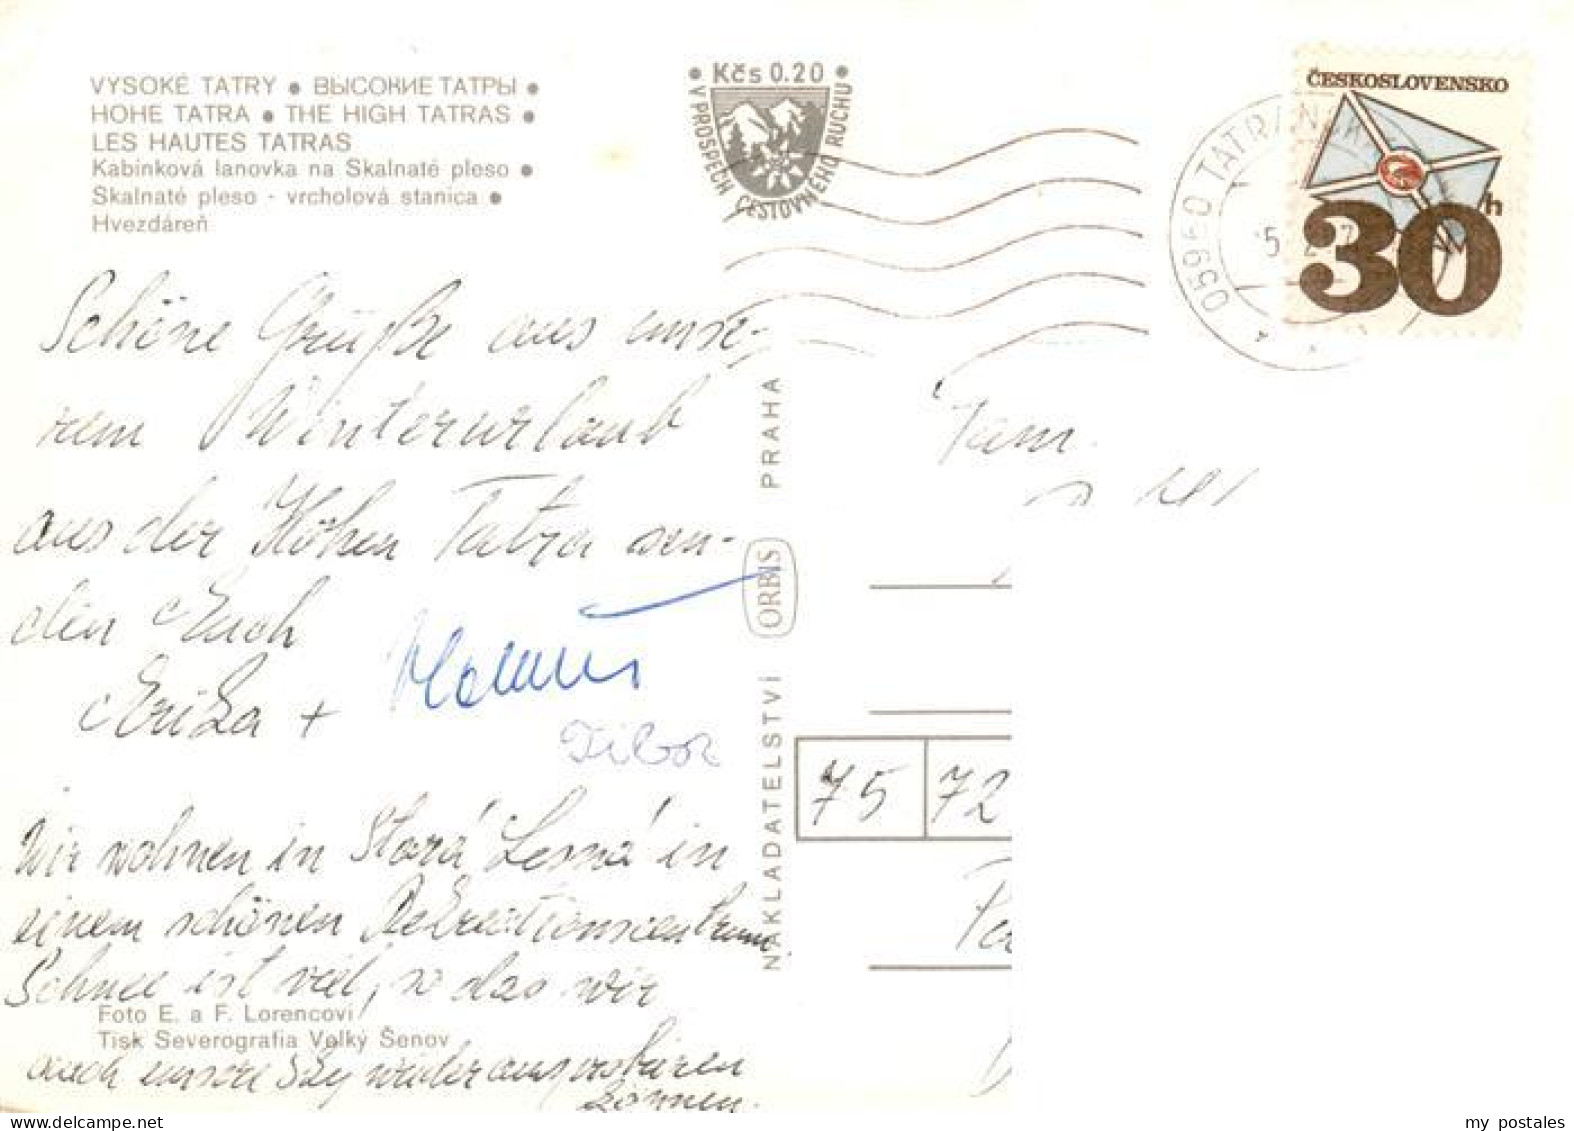 VYSOKÉ TATRY • ВЫСОКИЕ ТАТРЫ •
HOHE TATRA • THE HIGH TATRAS •
LES HAUTES TATRAS
Kabínková lanovka na Skalnaté pleso •
Skalnaté pleso - vrcholová stanica •
Hvezdáreň
• Kčs 0.20 •
V PROSPECH CESTOVNÉHO RUCHU
05960 TATRANSK
ČESKOSLOVENSKO
30h
Schöne Grüße aus unse-
rem Winterurlaub
aus der Hohen Tatra sen-
den Euch
Erika +
Tibor
Wir wohnen in Stará Lesná in
einem schönen Rekreationszentrum.
Schnee ist viel, so das wir
auch unsere Sky wieder ausprobieren
können.
Foto E. a F. Lorencoví
Tisk Severografia Velký Šenov
NAKLADATELSTVÍ ORBIS PRAHA
Fam.
75 72